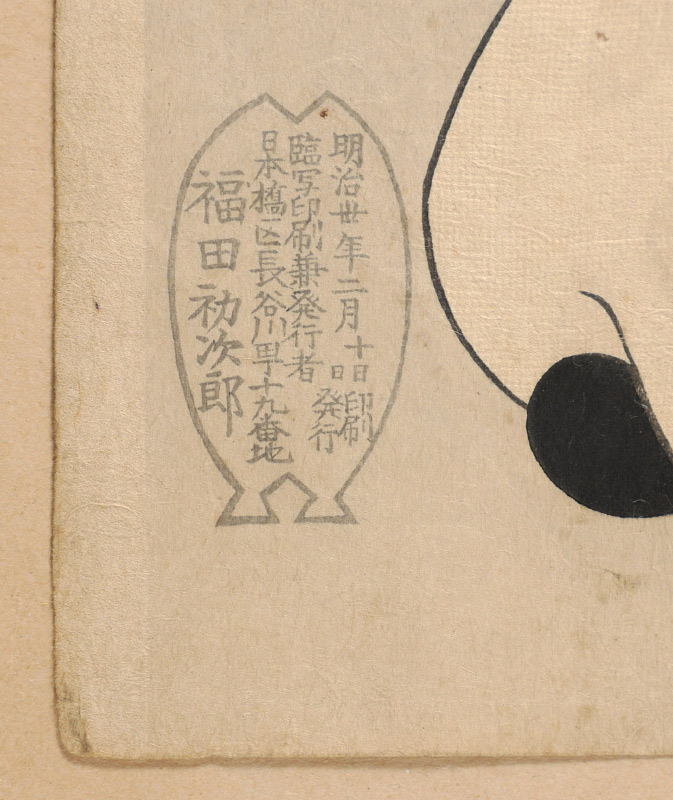 明治丗年二月十日印刷
日発行
臨写印刷兼発行者
日本橋区長谷川町十九番地
福田初次郎